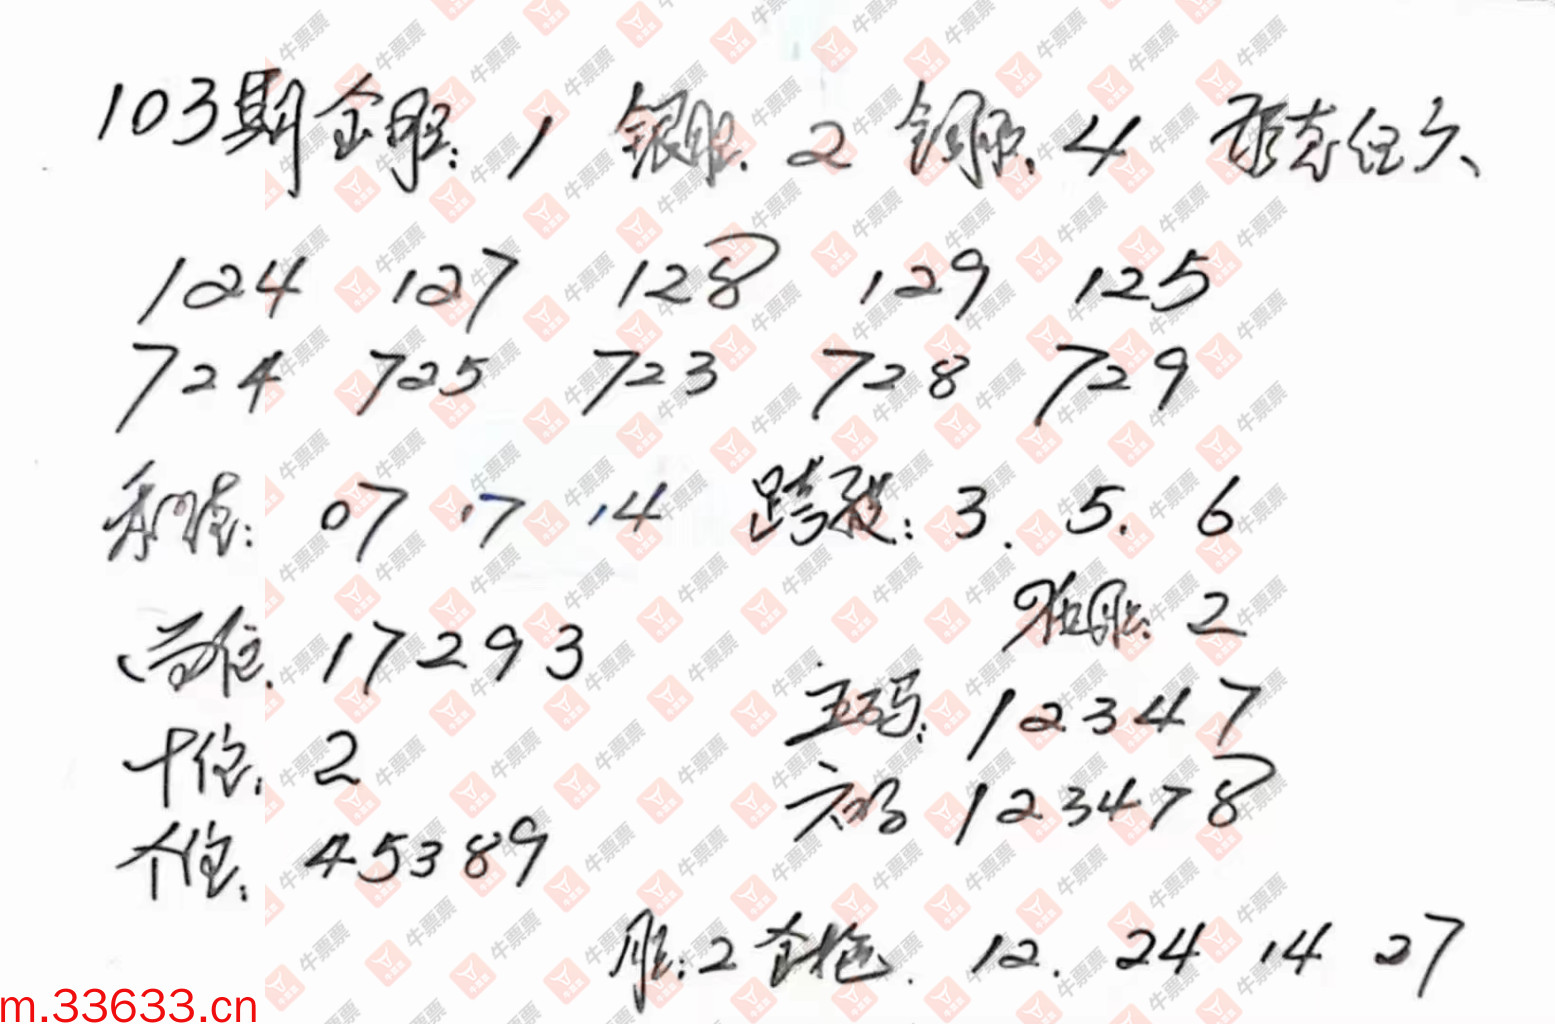 103期金胆: 1 银胆. 2 铜胆. 4 组六
124 127 128 129 125
724 725 723 728 729
和值: 07 17 14 跨度: 3. 5. 6
独胆: 2
百位. 17293
五码: 12347
十位: 2
六码 123478
个位: 45389
胆: 2 全拖. 12. 24 14 27
m.33633.cn
牛票票